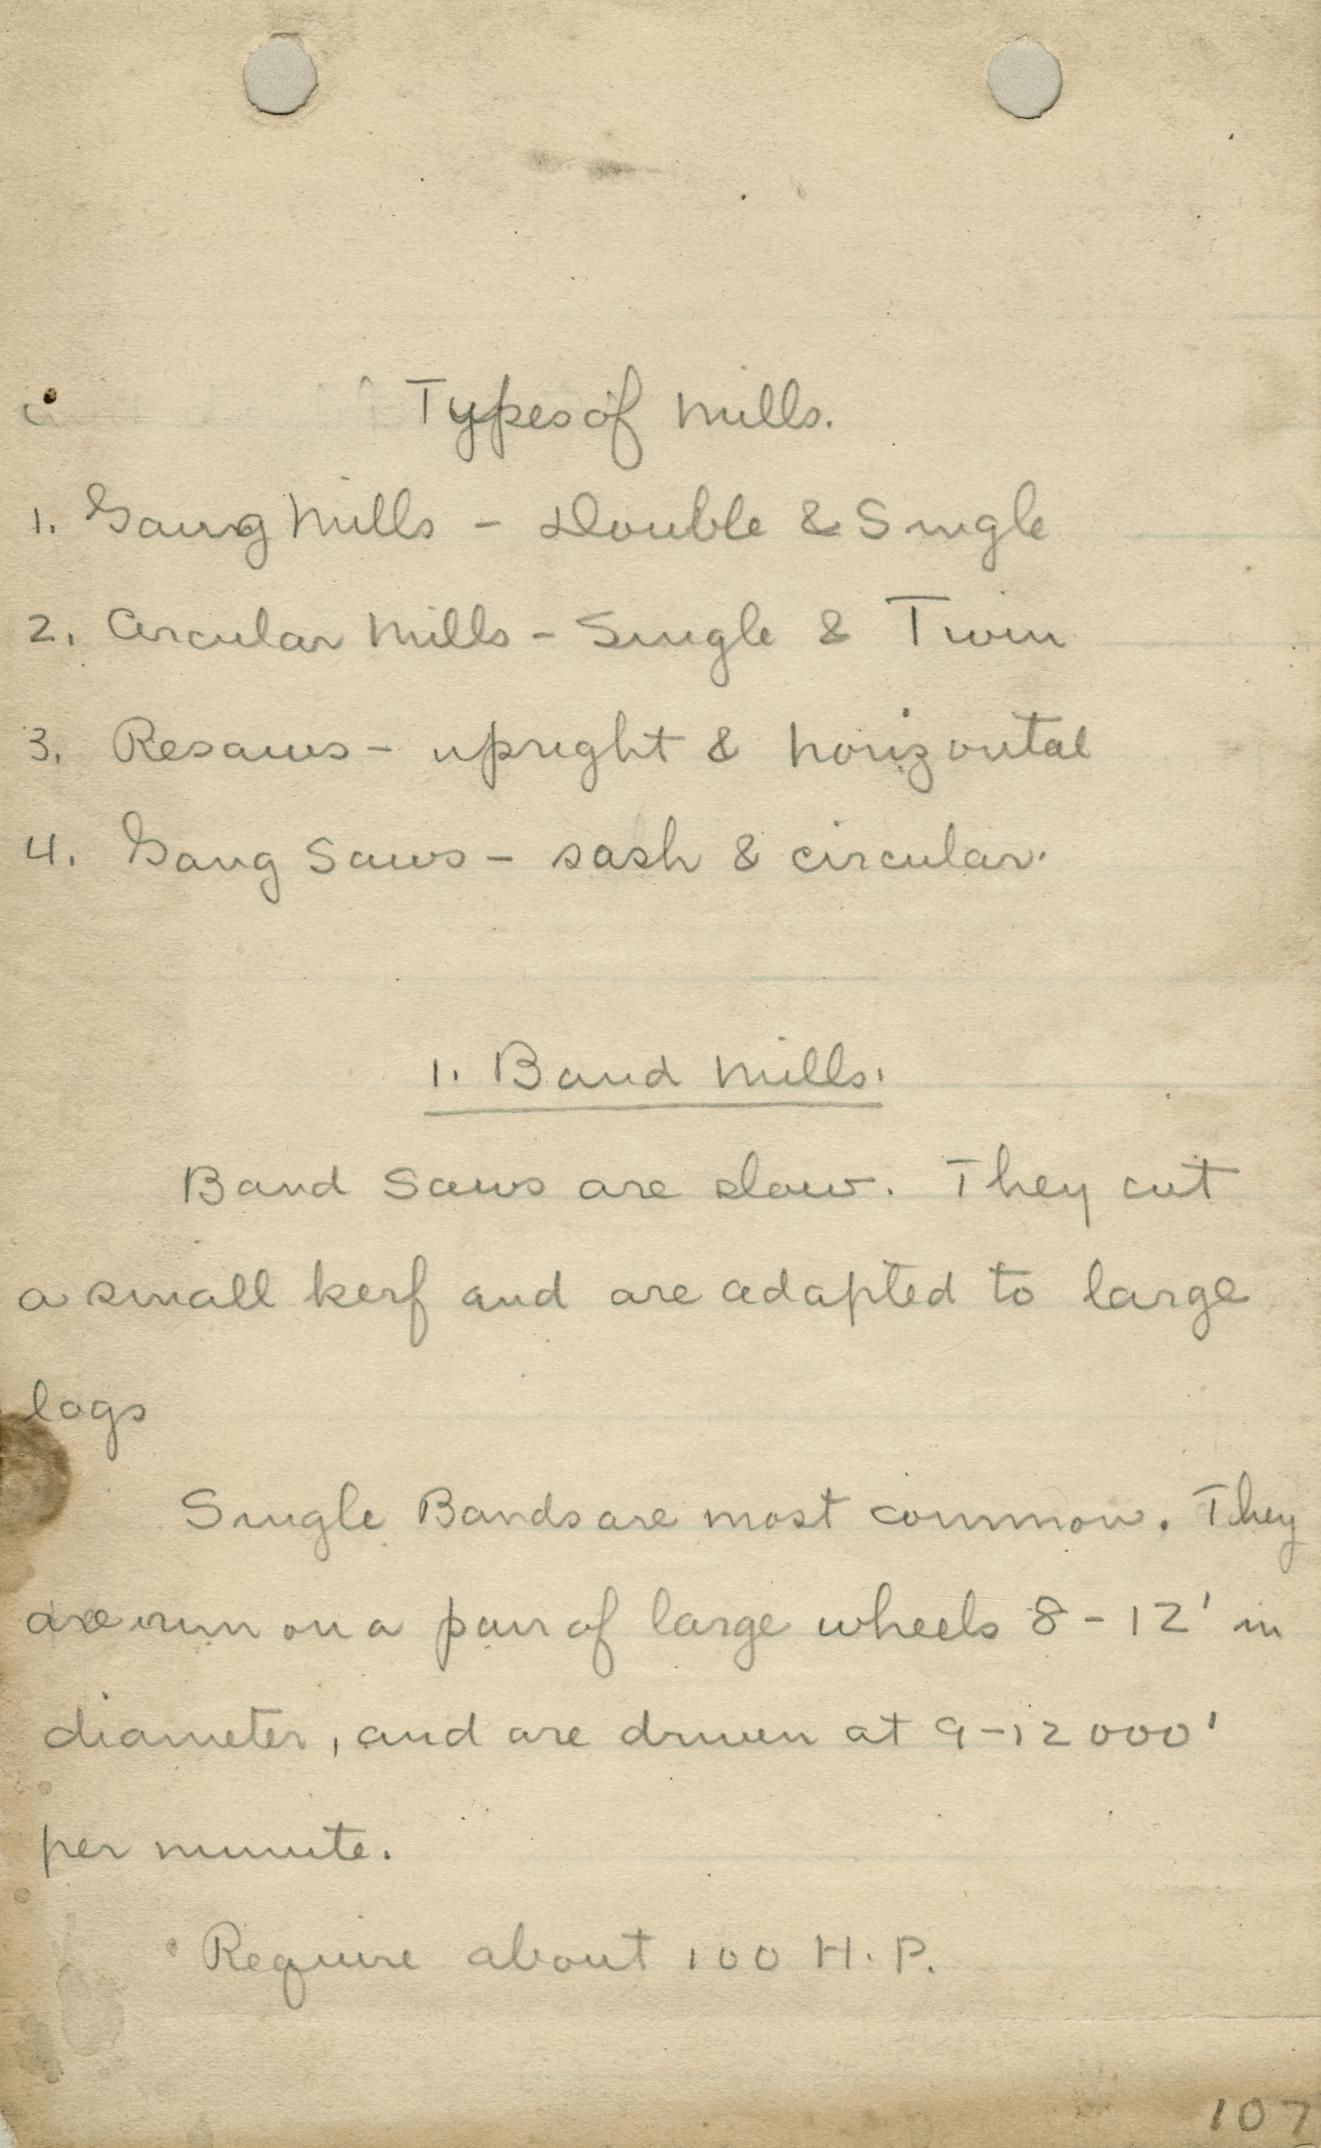 Types of Mills.
1. Gang Mills - Double & Single
2. Circular Mills - Single & Twin
3. Resaws - upright & horizontal
4. Gang Saws - sash & circular.
1. Band Mills.
Band Saws are slow. They cut
a small kerf and are adapted to large
logs
Single Bands are most common. They
are run on a pair of large wheels 8-12' in
diameter, and are driven at 9-12000'
per minute.
Require about 100 H.P.
107